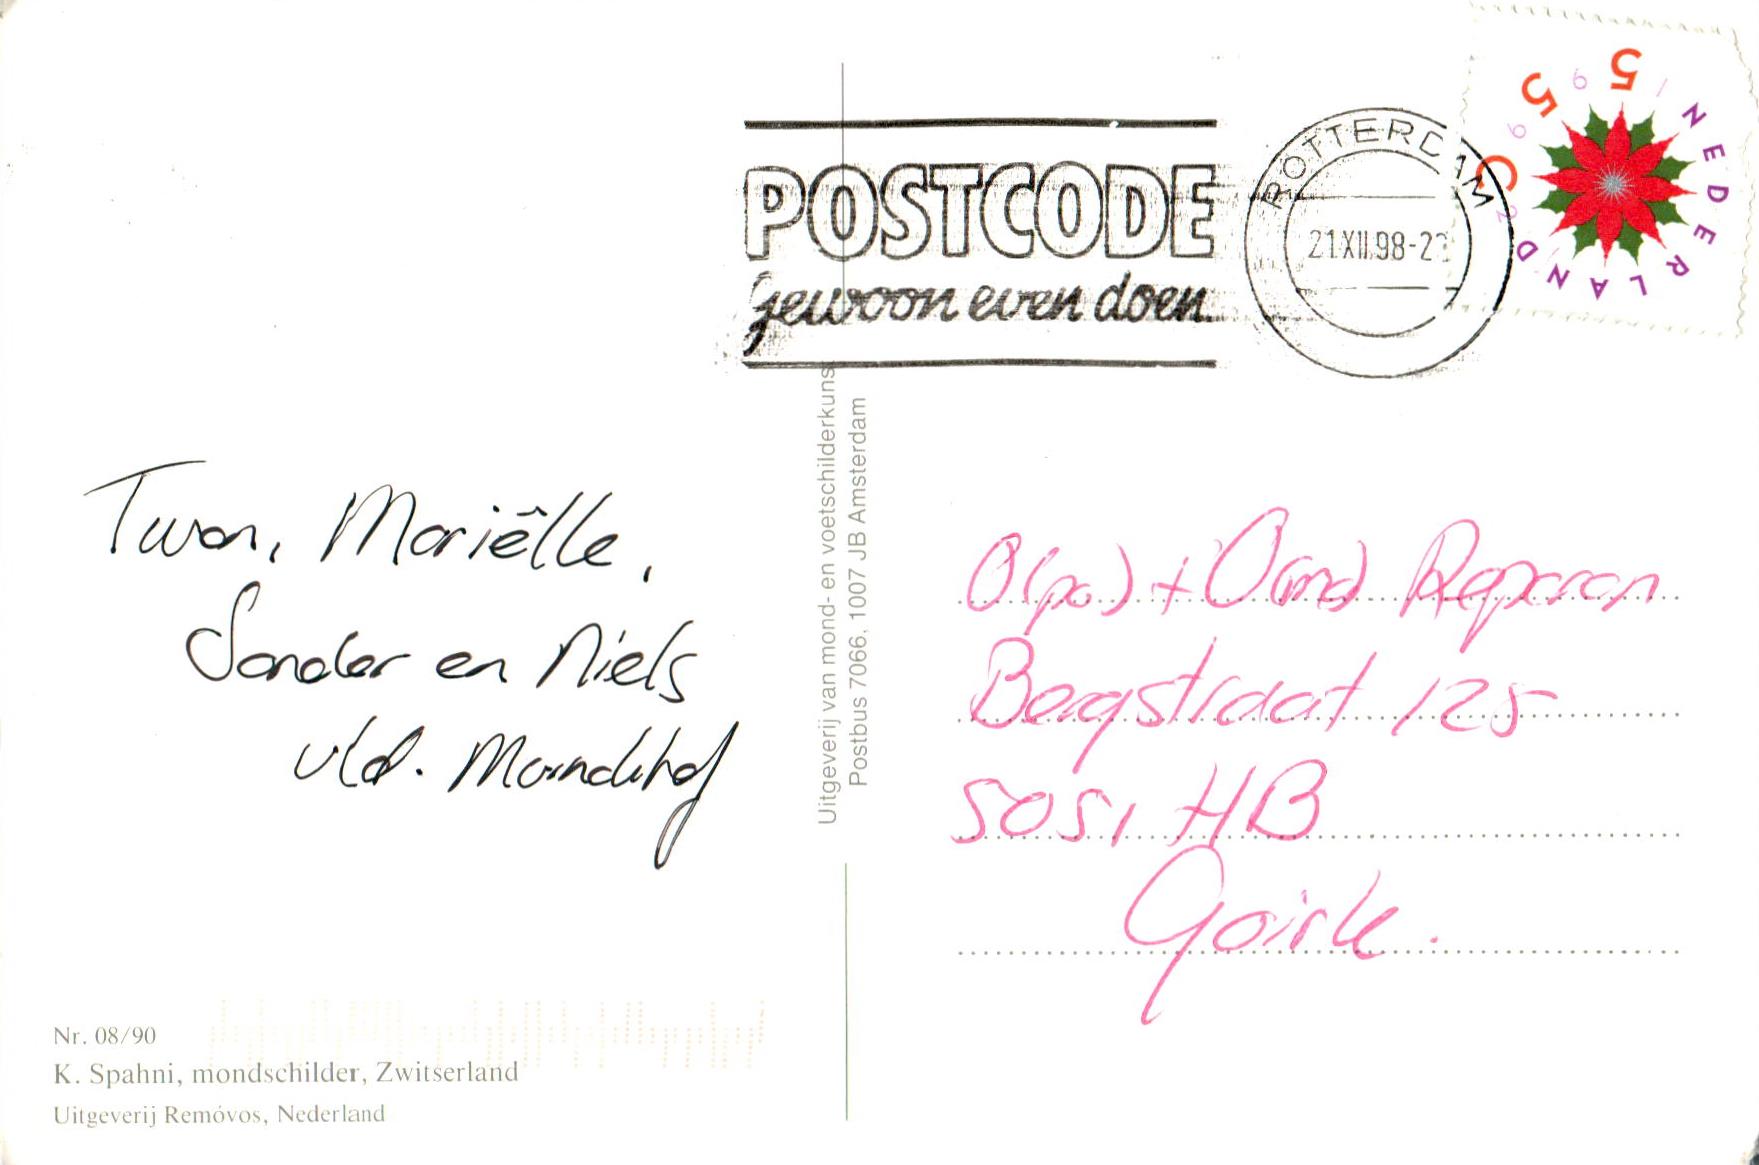 POSTCODE
gewoon even doen
ROTTERDAM
21.XII.98-2
55 C
1992
NEDERLAND
Twan, Mariëlle,
Sander en Niels
v/d.
Uitgeverij van mond- en voetschilderkunst
Postbus 7066, 1007 JB Amsterdam
O(pa) + Oma
Bergstraat 125
5051 HB
Goirle.
Nr. 08/90
K. Spahni, mondschilder, Zwitserland
Uitgeverij Remóvos, Nederland